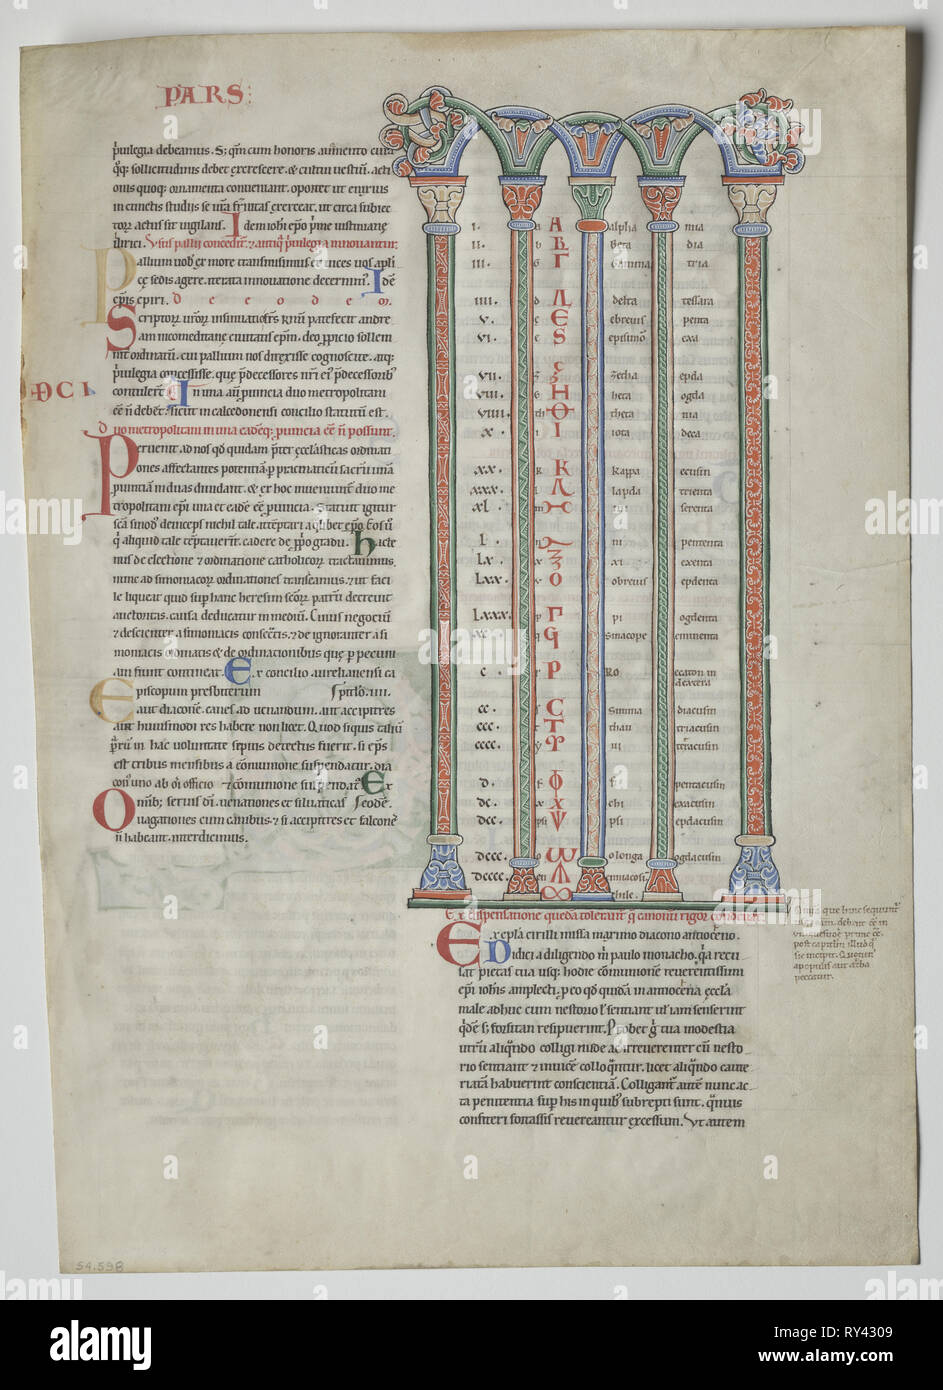 PARS
puilegia debeamus. S; qm cum honoris aumento cura
qq; sollicitudinis debet excrescere. & cultui uestiu. acti
onis quoq; ornamenta conueniant. oportet ut enixius
in cunctis studiis se
tor actus sit uigilans. Idem iohi epo prime iustiniane
illirici. Usus pallii concedit & antiq puilegia innouantur.
Pallium uob ex more transmisimus et uices uos apli
ce sedis agere. iterata innouatione decernim. Idem
epis epiri. decodem.
Scriptor uror insinuatio
eam nicomeditane ciuitatis epm. deo ppicio sollem
nit ordinatu. cui pallium nos direxisse cognoscite. atq;
puilegia concessisse. que pdecessores nri ei pdecessorib
contulert. In una aut puincia duo metropolitani
ee n debet. sicut in calcedonensi concilio statutu est.
DCI
duo metropolitani in una eadeq; puincia ee n possunt.
Peruenit ad nos qd quidam pter ecclasticas ordinati
ones affectantes potentia p pracmaticu sacru una
puintia in duas diuidant. & ex hoc inueniunt duo me
tropolitani epi una et eade ee puincia. Statuit igitur
sca sinod deinceps nichil tale attemptari a qlibet epo. Eos u
q aliquid tale temptauerit. cadere de pprio gradu. Hacte
nus de electione & ordinatione catholicor tractauimus.
nunc ad simoniacor ordinationes transeamus. & ut faci
le liqueat quid sup hanc heresim scor patru decreuit
auctoritas. causa deducatur in mediu. Cuius negociu
& descienter a simoniacis consecratis. & de ignoranter a si
moniacis ordinatis & de ordinationibus que p pecuni
am fiunt contineat. Ex concilio aurelianensi ca
Episcopum presbiterum spitlo. iiii.
aut diacone. canes ad uenandum. aut accipitres
aut huiusmodi res habere non licet. Quod siquis taliu
psonaru in hac uoluntate sepius detectus fuerit. si eps
est tribus mensibus a comunione suspendatur. dia
con uno ab oi officio & comunione suspendat. Ex
Omib; seruis di. uenationes et siluaticas seodem.
uagationes cum canibus & si accipitres et falcones
n habeant. interdicimus.
i. a A alpha mia
ii. b B beta dia
iii. G Γ Gamma tria
iiii. d Δ delta tessara
v. e E ebreuis penta
vi. c S episimo exa
vii. z zecha epda
viii. h H heta ogda
viiii. th Θ theta nia
x. i I iota deca
xx. k K kappa eccusin
xxx. l Λ lapda trienta
xl. m mi serenta
l. n ni pententa
lx. x xi exenta
lxx. o O obreuis epdenta
lxxx. p Π pi ogdenta
xc. q Q sinacope ennenta
c. r P RO eccaton in
decxera
cc. s C simma diacusin
ccc. t T thau triacusin
cccc. y ui tetracusin
d. f Φ fi pentacusin
dc. x X chi exacusin
dcc. psi psi epdacusin
dccc. o ω o longa ogdacusin
dcccc. en ennacosi
chile.
Ex dispensatione queda tolerant q canonu rigor
Ex epla cirilli missa maximo diacono antioceno.
Didici a diligendo m paulo monacho. qa recu
sat pietas tua usq; hodie comunione reuerentissimi
epi iohis amplecti. p eo qd quida in antiocena eccla
male adhuc cum nestorio l sentiant ul iam senserint
qde s; forsitan resipuerint. Probet g tua modestia
utru aliqndo colligi nude ac irreuerenter cu nesto
rio sentiant & inuice colloqntur. licet aliqndo caute
riata habuerint conscientia. Colligant aute nunc ac
ta penitentia sup his in quib subrepti sunt. qmuis
confiteri fortassis reuereantur excessum. Ut autem
54.598
alamy
Image ID: RY4309
www.alamy.com